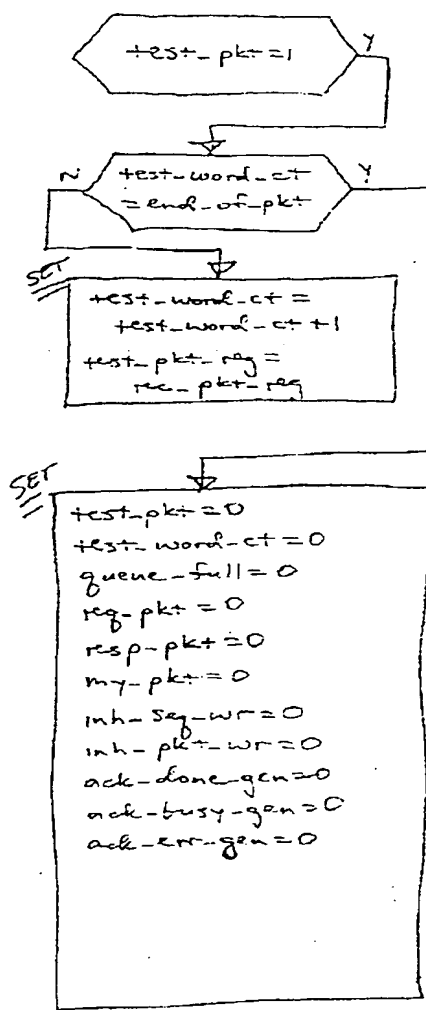 test_pkt=1
Y
test_word_ct
=end_of_pkt
N
Y
SET
test_word_ct=
test_word_ct+1
test_pkt_reg=
rec_pkt_reg
SET
test_pkt=0
test_word_ct=0
queue_full=0
req_pkt=0
resp_pkt=0
my_pkt=0
inh_seq_wr=0
inh_pkt_wr=0
ack_done_gen=0
ack_busy_gen=0
ack_err_gen=0